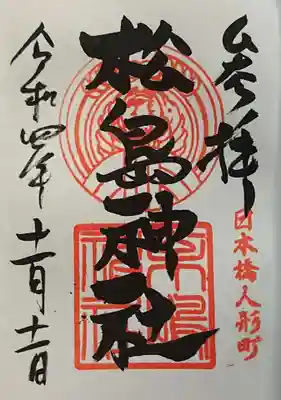 奉拝
日本橋人形町
松島神社
令和四年十一月十一日